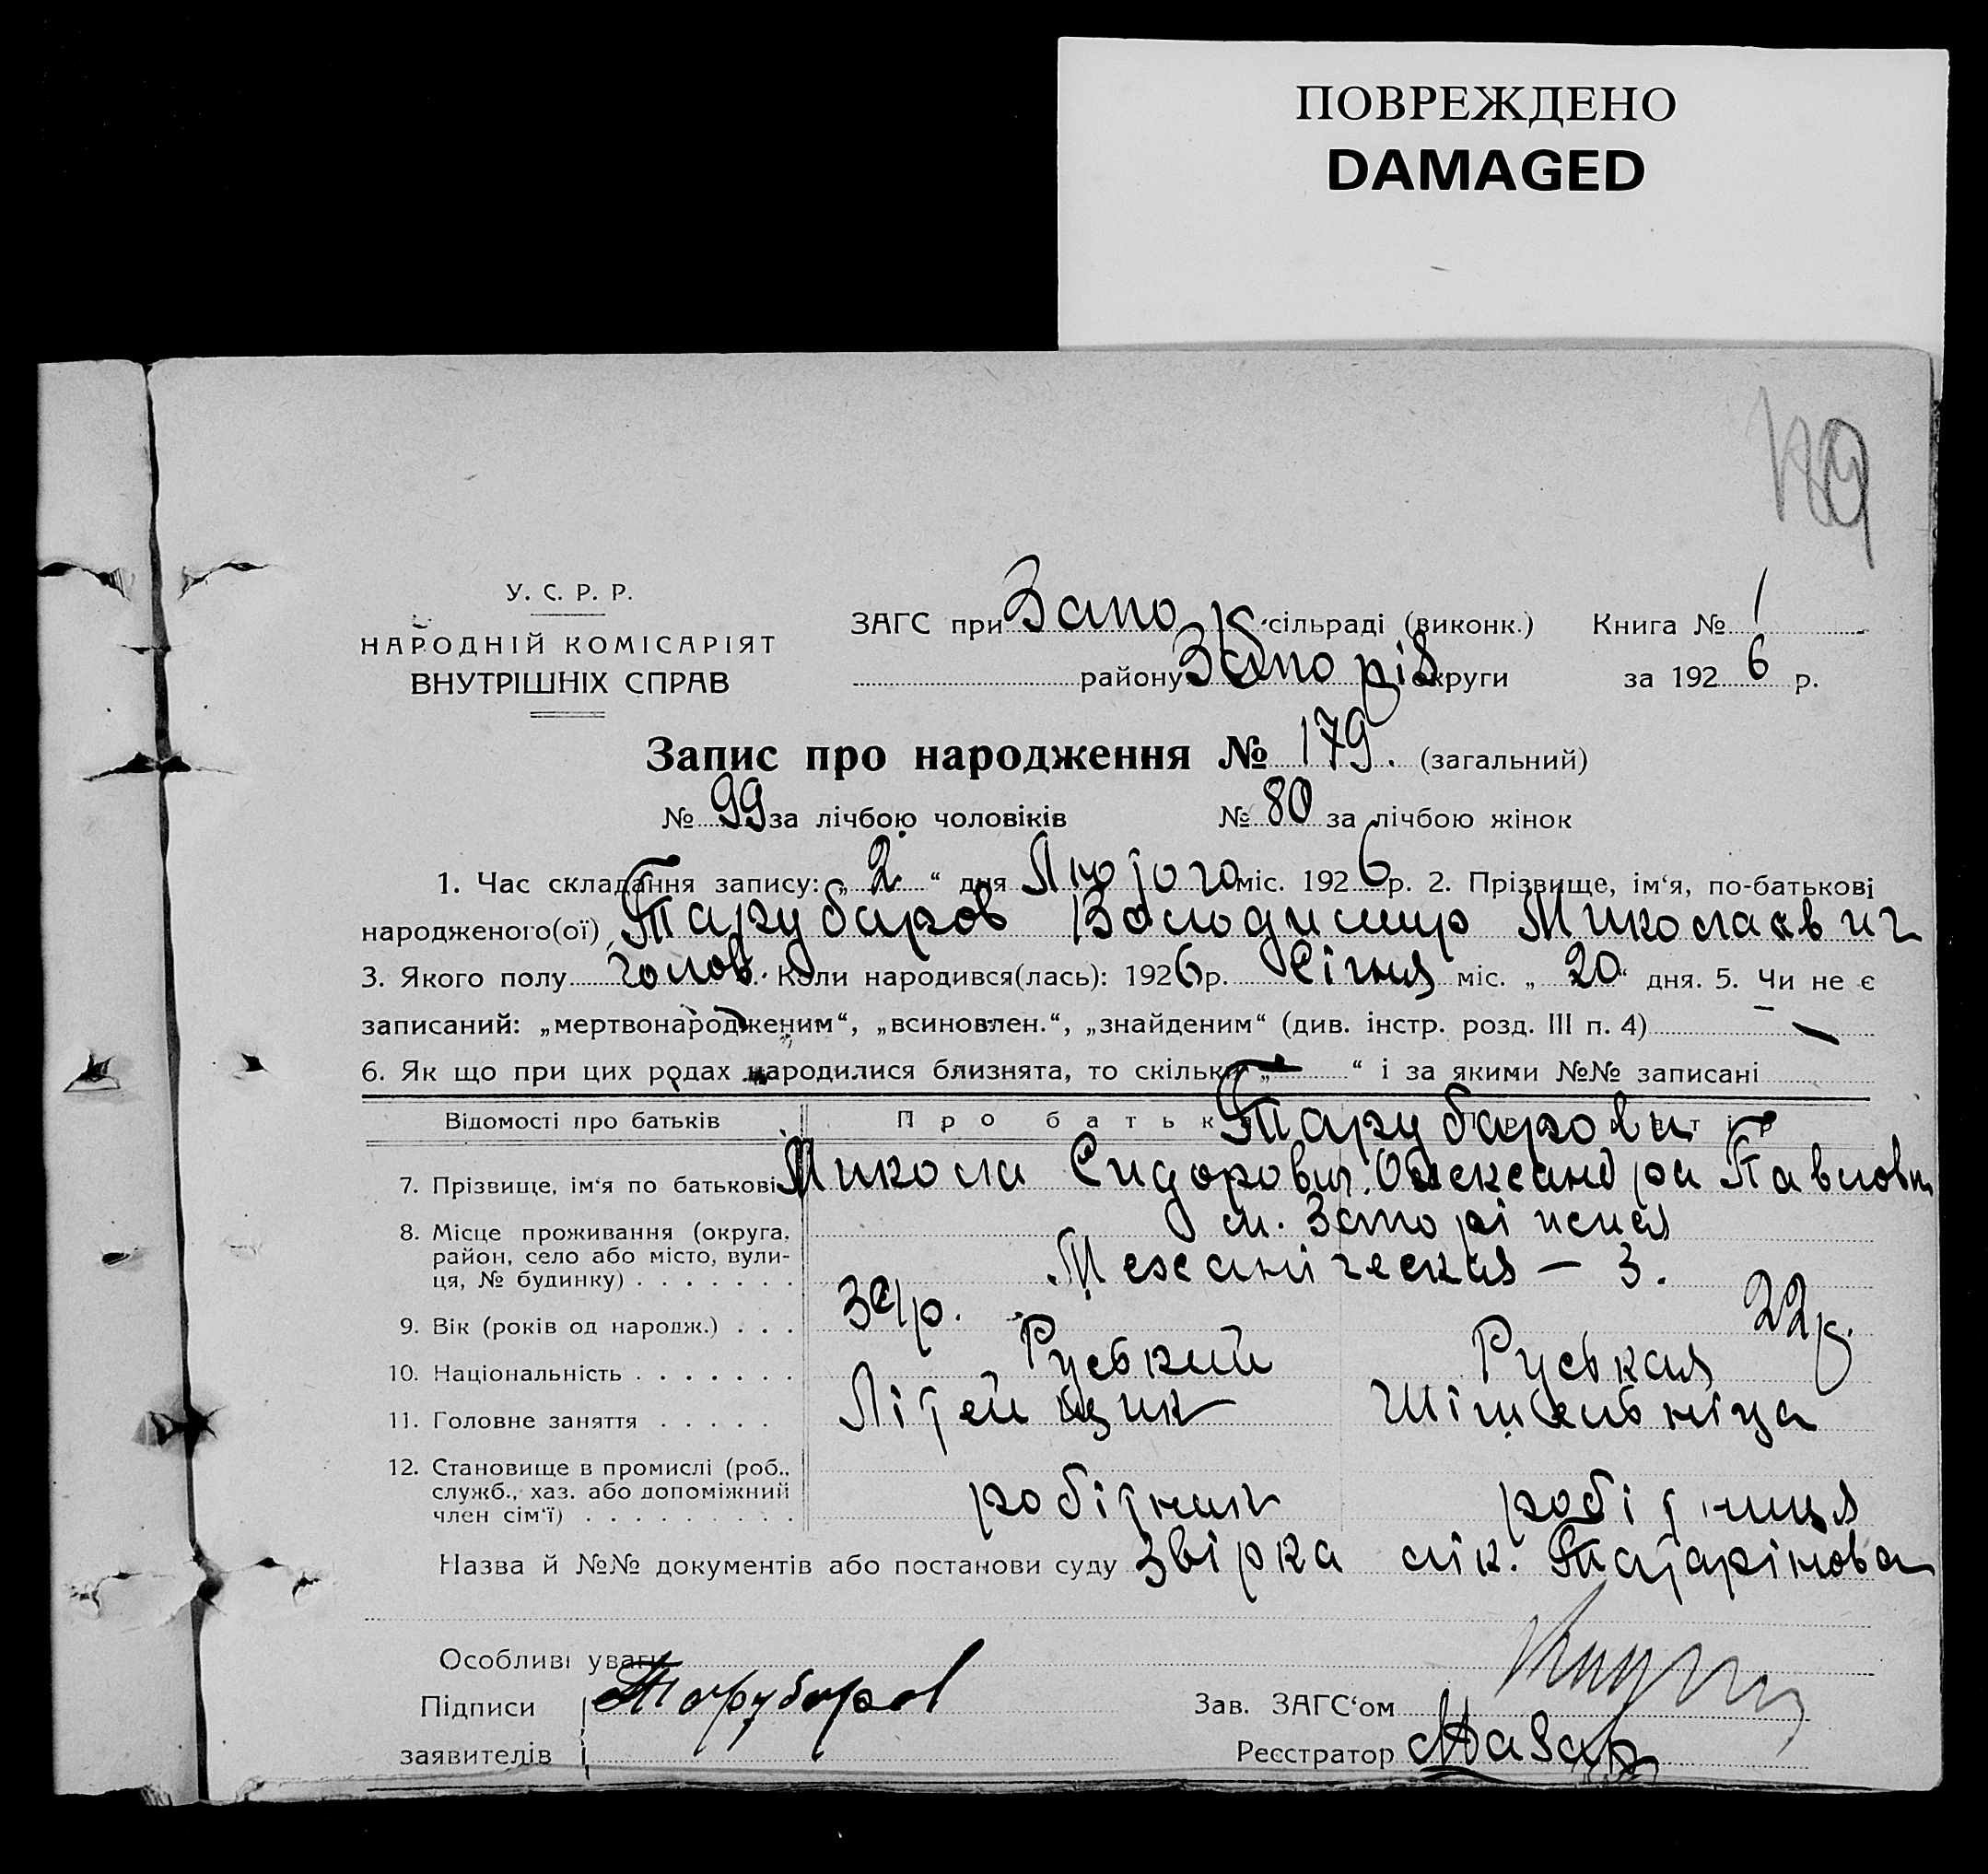 ПОВРЕЖДЕНО
DAMAGED
У. С. Р. Р.
НАРОДНІЙ КОМІСАРІЯТ
ВНУТРІШНІХ СПРАВ
ЗАГС при Запо сільраді (виконк.) Книга № 1
району Запоріз округи за 1926 р.
Запис про народження № 179. (загальний)
№ 99 за лічбою чоловіків № 80 за лічбою жінок
1. Час складання запису: „2“ дня Лютого міс. 1926 р. 2. Прізвище, ім‘я, по-батькові
народженого(ої) Тарубаров Володимир Миколаєвич
3. Якого полу чолов. Коли народився(лась): 1926 р. Січня міс. „20“ дня. 5. Чи не є
записаний: „мертвонародженим“, „всиновлен.“, „знайденим“ (див. інстр. розд. III п. 4) —
6. Як що при цих родах народилися близнята, то скільки „—“ і за якими №№ записані
Відомості про батьків Про батьк Тарубарови
7. Прізвище, ім‘я по батькові Микола Сидорович Олександра Павловн
8. Місце проживання (округа, район, село або місто, вулиця, № будинку) . . . . . . . м.
Механіческая — 3.
9. Вік (років од народж.) . . . 22 р.
10. Національність . . . . . . . Руський Руськая
11. Головне заняття . . . . . Літейщик
12. Становище в промислі (роб., служб., хаз. або допоміжний член сім‘ї) . . . . . . . . . робітник робітниця
Назва й №№ документів або постанови суду Звірка лік. Татарінова
Особливі уваги
Підписи Тарубаров Зав. ЗАГС‘ом
заявителів Реєстратор Назар